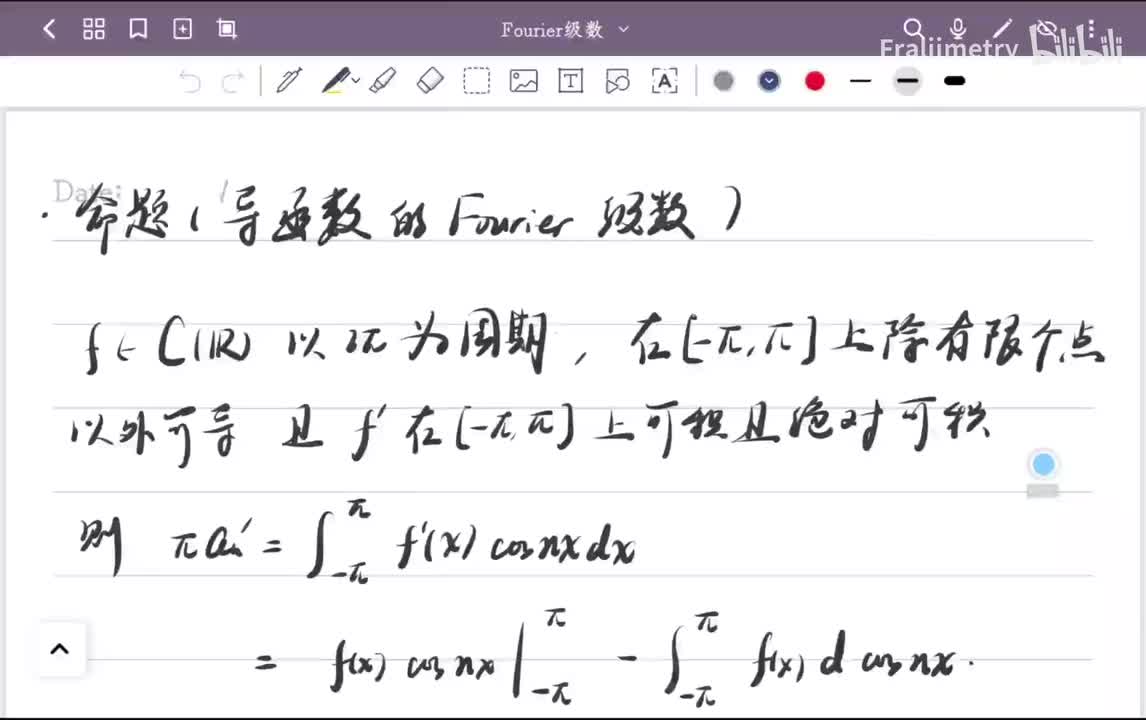 Fourier级数
Fraljimetry bilibili
Date: /
· 命题(导函数的 Fourier 级数)
f ∈ C(ℝ) 以 2π 为周期, 在[-π,π]上除有限个点
以外可导 且 f' 在[-π,π]上可积且绝对可积
则 πaₙ' = ∫_{-π}^{π} f'(x) cos nx dx
= f(x) cos nx |_{-π}^{π} - ∫_{-π}^{π} f(x) d cos nx.